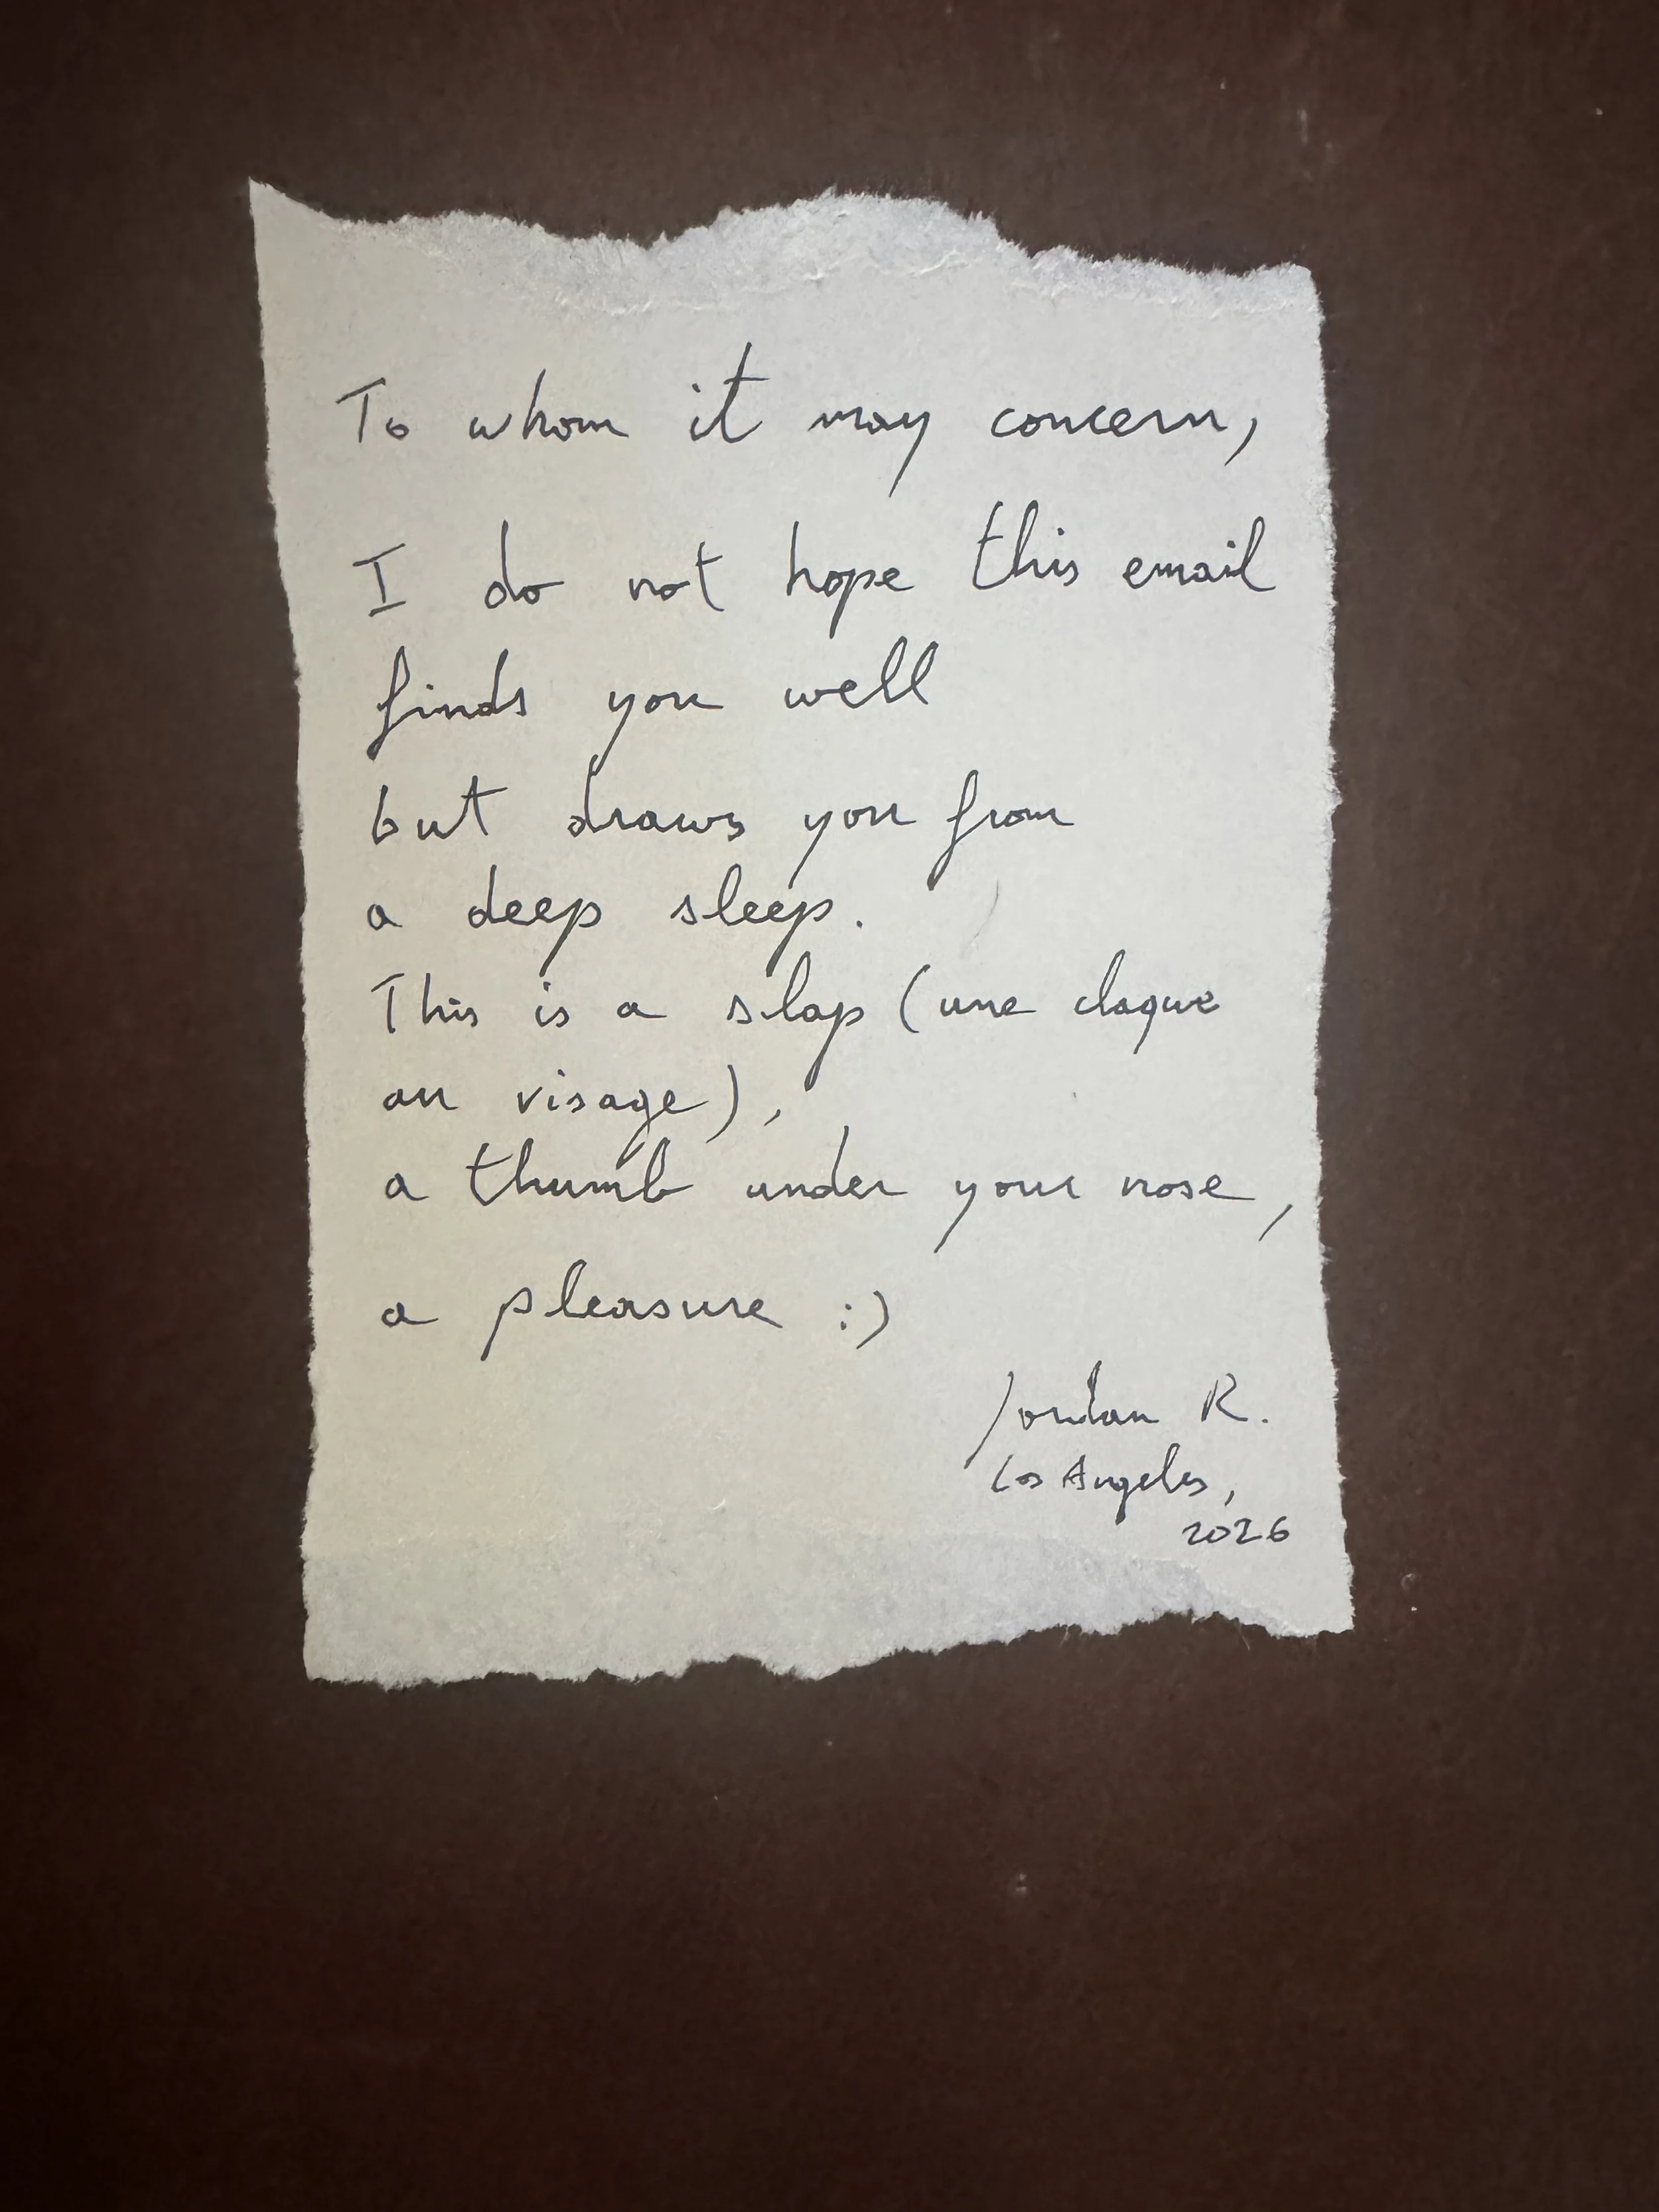 To whom it may concern,
I do not hope this email
finds you well
but draws you from
a deep sleep.
This is a slap (une claque
au visage),
a thumb under your nose,
a pleasure :)
Jordan R.
Los Angeles,
2026